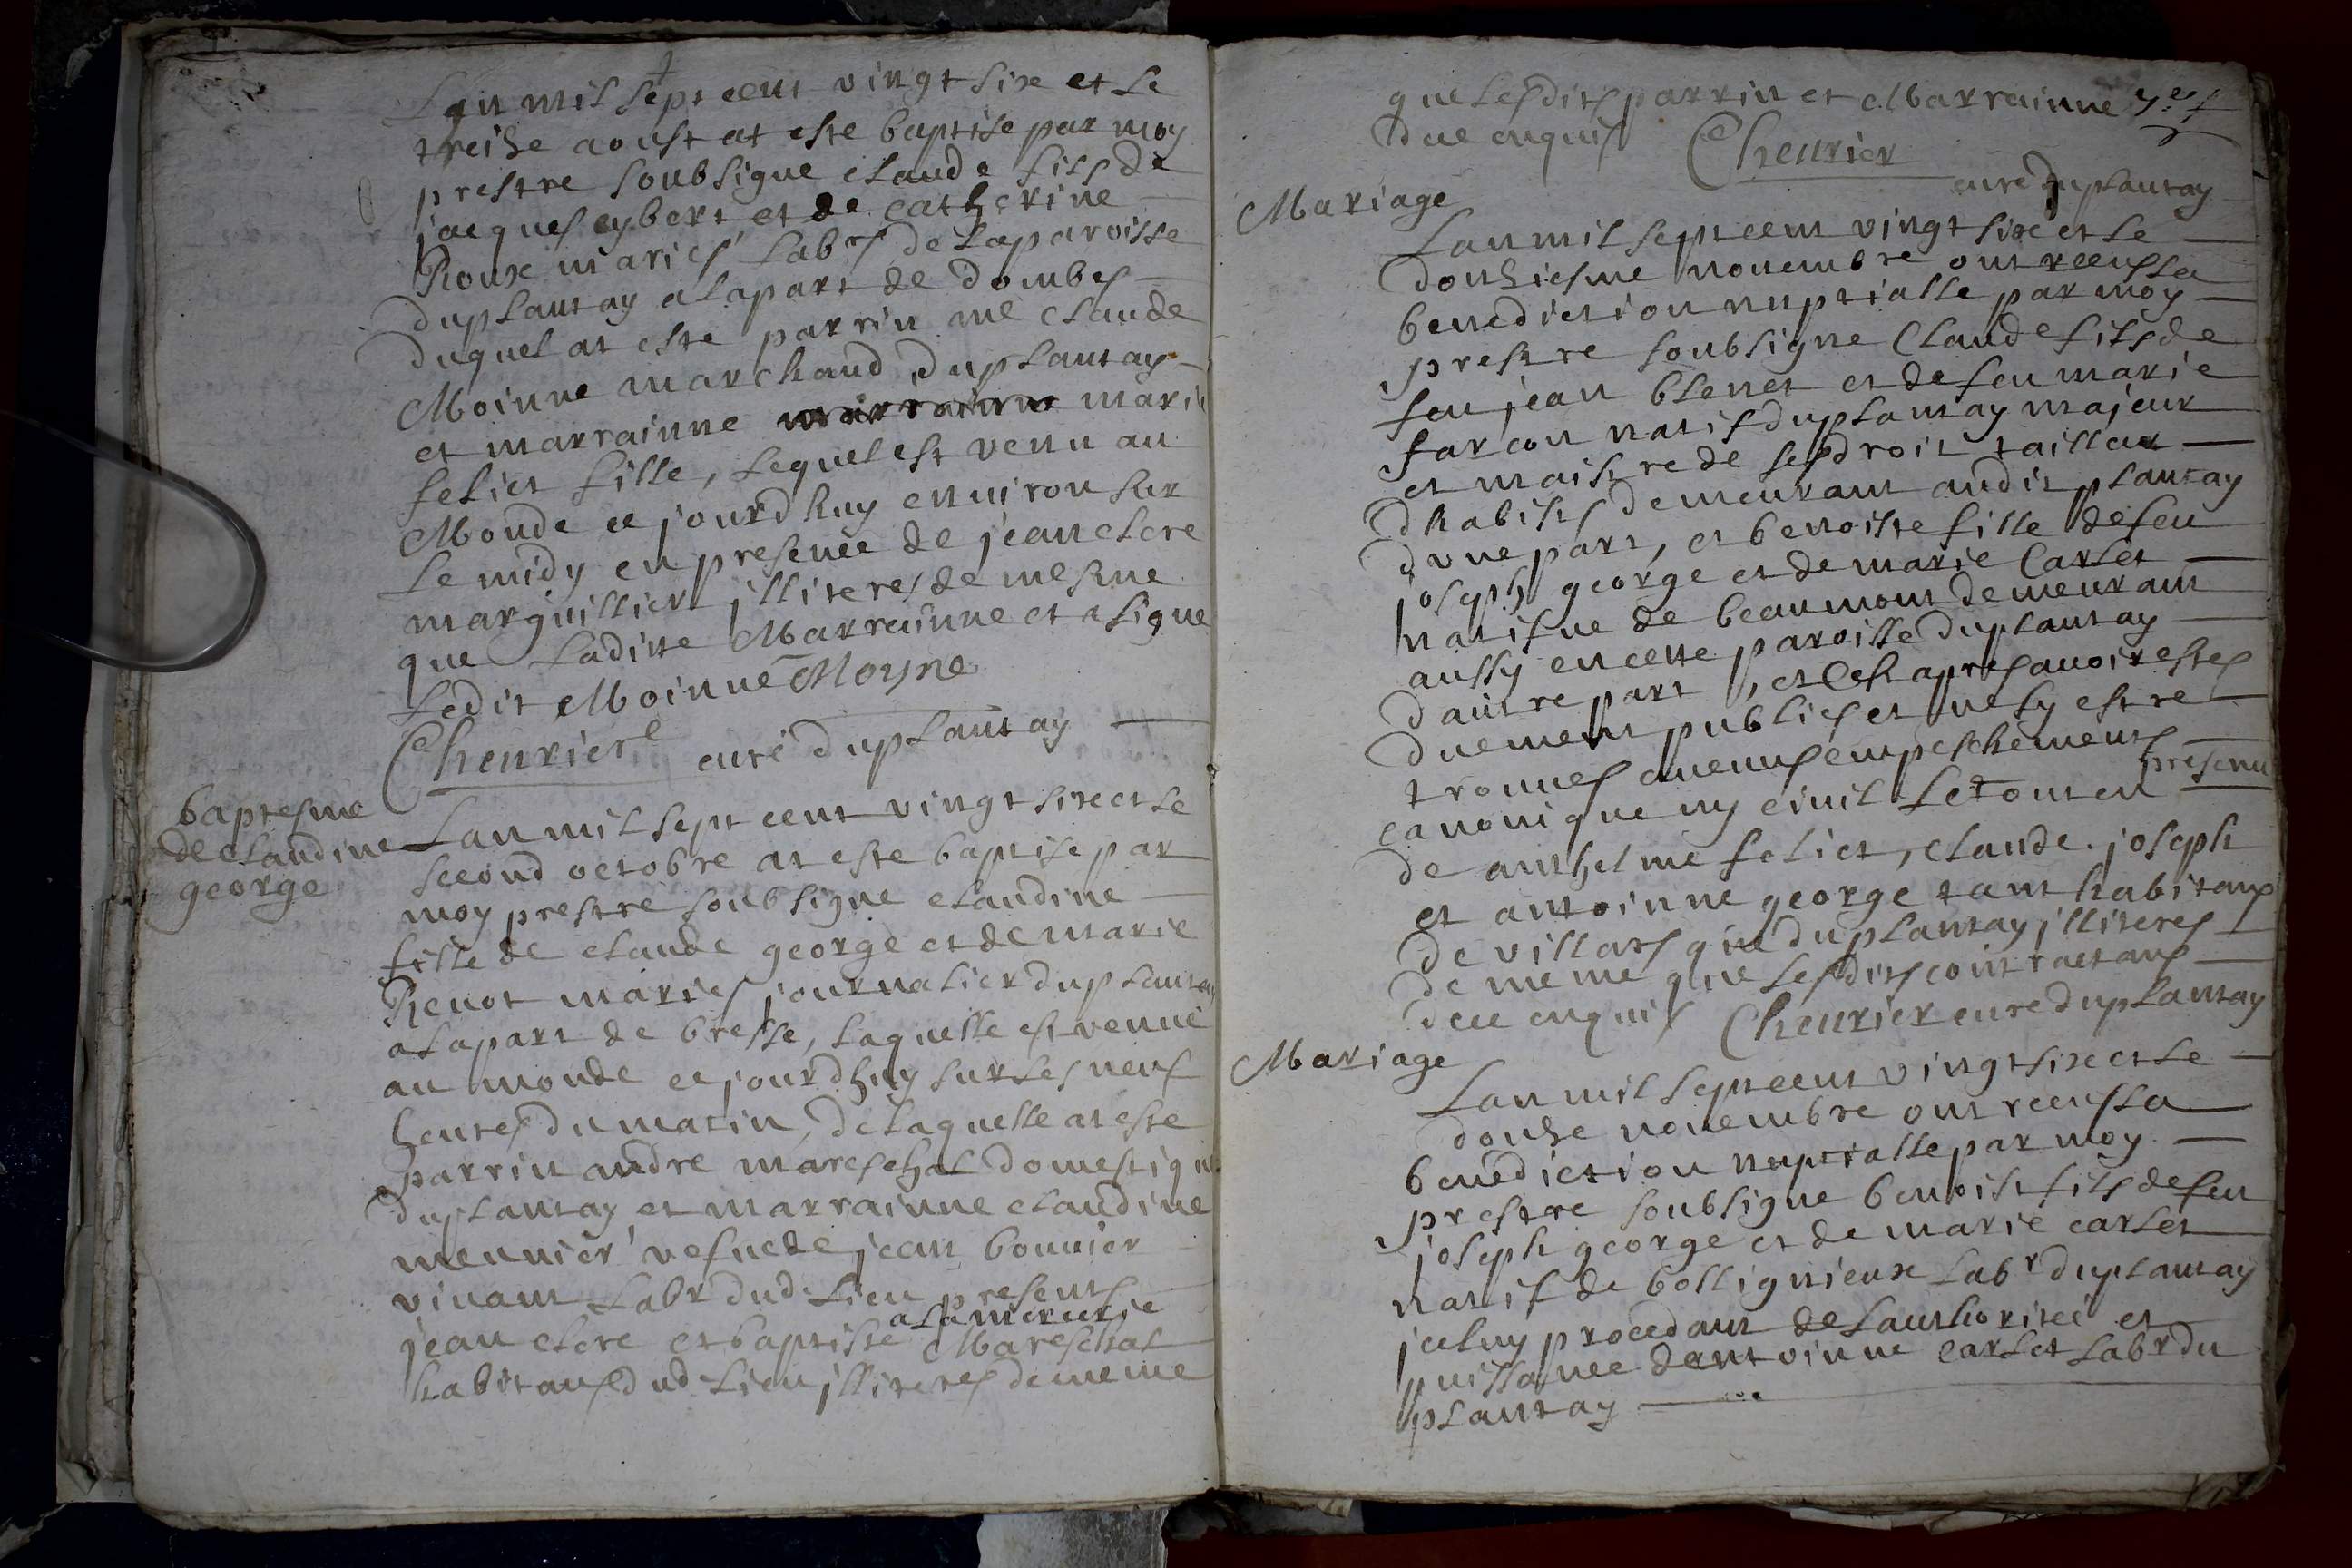 Lan mil sept cent vingt sixe et le
treihe aoust at este baptise par moy
prestre soubsigne claude fils de
jacques eybert et de catherine
Roux mariés labrs de la paroisse
duplantay a la part de Dombes
duquel at este parrin me claude
Moinne marchand duplantay
et marrainne marrainne marie
feliet fille, lequel est venu au
Monde ce jourdhuy environ sur
le midy en presence de jean clere
marguillier jlliteres de mesme
que ladite Marrainne et a signe
ledit Moinne Moyne
Cheurier curé duplantay
baptesme
de claudine
george
Lan mil sept cent vingt sixe et le
second octobre at este baptise par
moy prestre soubsigne claudine
fille de claude george et de marie
Renot mariés journalier duplantay
a la part de bresse, laquelle est venue
au monde ce jourdhuy sur les neuf
heures du matin, de laquelle at este
parrin andre mareschal domestique
duplantay et marrainne claudine
meunier vefue de jean bonnier
viuant labr dud lieu presents
a la mercerie
jean clere et baptiste Mareschal
habitans dud lieu jlliteres de meme
que lesdits parrin et Marrainne
de ce enquis Cheurier
cure duplantay
Mariage
Lan mil sept cent vingt sixe et le
douhiesme nouembre ont receus la
benediction nuptialle par moy
prestre soubsigne Claude fils de
feu jean blenet et de feu marie
farcon natif duplantay majeur
et maistre de ses droit tailleur
dhabits demeurant audit plantay
dune part, et benoiste fille de feu
joseph george et de marie Carlet
natifue de beaumont demeurant
aussy en cette paroisse duplantay
dautre part, et ce apres auoir estes
duement publies et ne sy estre
trouues aucuns empeschements
canonique ny ciuil le tout en presence
de anthelme feliet, claude. joseph
et antoinne george tant habitans
de villars que duplantay jlliteres
de meme que lesdits contractans
de ce enquis Cheurier cure duplantay
Mariage
Lan mil sept cent vingt sixe et le
douhe nouembre ont receus la
benediction nuptialle par moy
prestre soubsigne benoist fils de feu
joseph george et de marie carlet
natif de bollignieux labr duplantay
jceluy procedant de lauthoritée et
puissance dantoinne carlet labr du
plantay